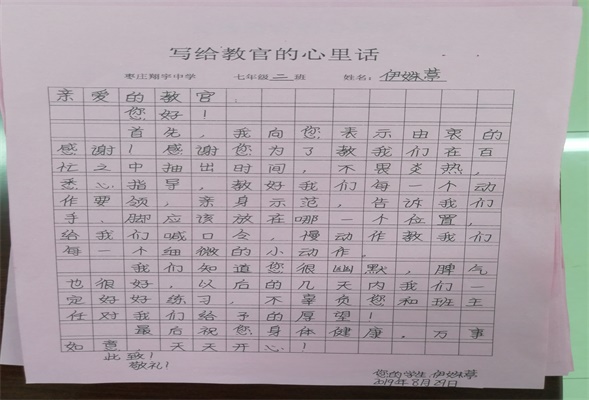 写给教官的心里话
枣庄翔宇中学 七年级二班 姓名：伊姝葶
亲爱的教官
您好！
首先，我向您表示由衷的
感谢！感谢您为了教我们在百
忙之中抽出时间，不畏炎热，
悉心指导，教好我们每一个动
作要领，亲身示范，告诉我们
手、脚应该放在哪一个位置，
给我们喊口令，慢动作教我们
每一个细微的小动作。
我们知道您很幽默，脾气
也很好，以后的几天内我们一
定好好练习，不辜负您和班主
任对我们给予的厚望！
最后祝您身体健康，万事
如意，天天开心！
此致！
敬礼！
您的学生 伊姝葶
2019年8月29日